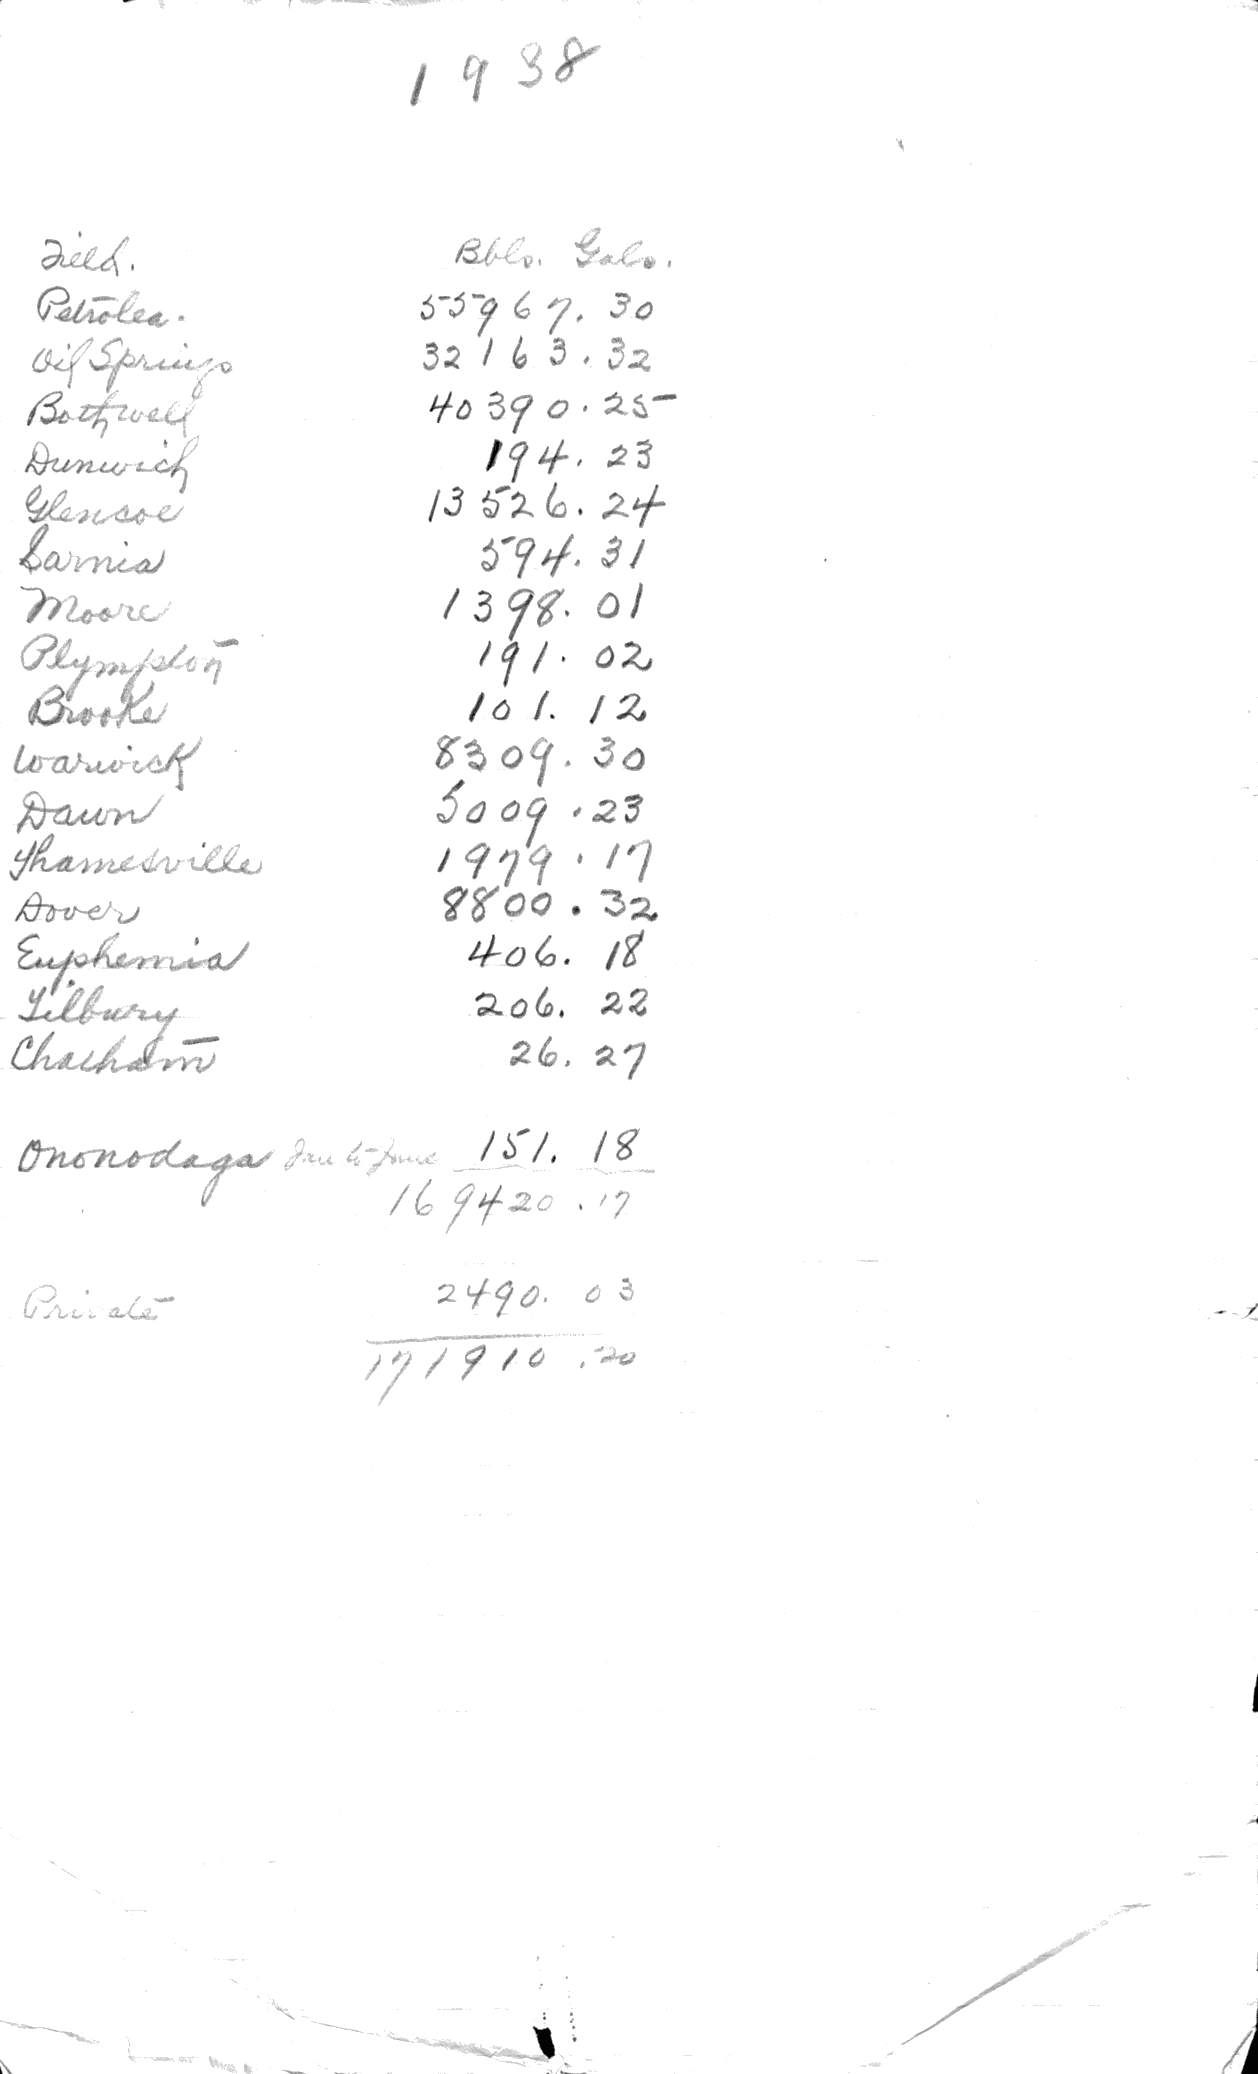 1938
Field. Bbls. Gals.
Petrolea. 55967. 30
Oil Springs 32163. 32
Bothwell 40390. 25
Dunwich 194. 23
Glencoe 13526. 24
Sarnia 594. 31
Moore 1398. 01
Plympton 191. 02
Brooke 101. 12
Warwick 8309. 30
Dawn 5009. 23
Thamesville 1979. 17
Dover 8800. 32
Euphemia 406. 18
Tilbury 206. 22
Chatham 26. 27
Ononodaga Jan to June 151. 18
169420. 17
Private 2490. 03
171910. 20